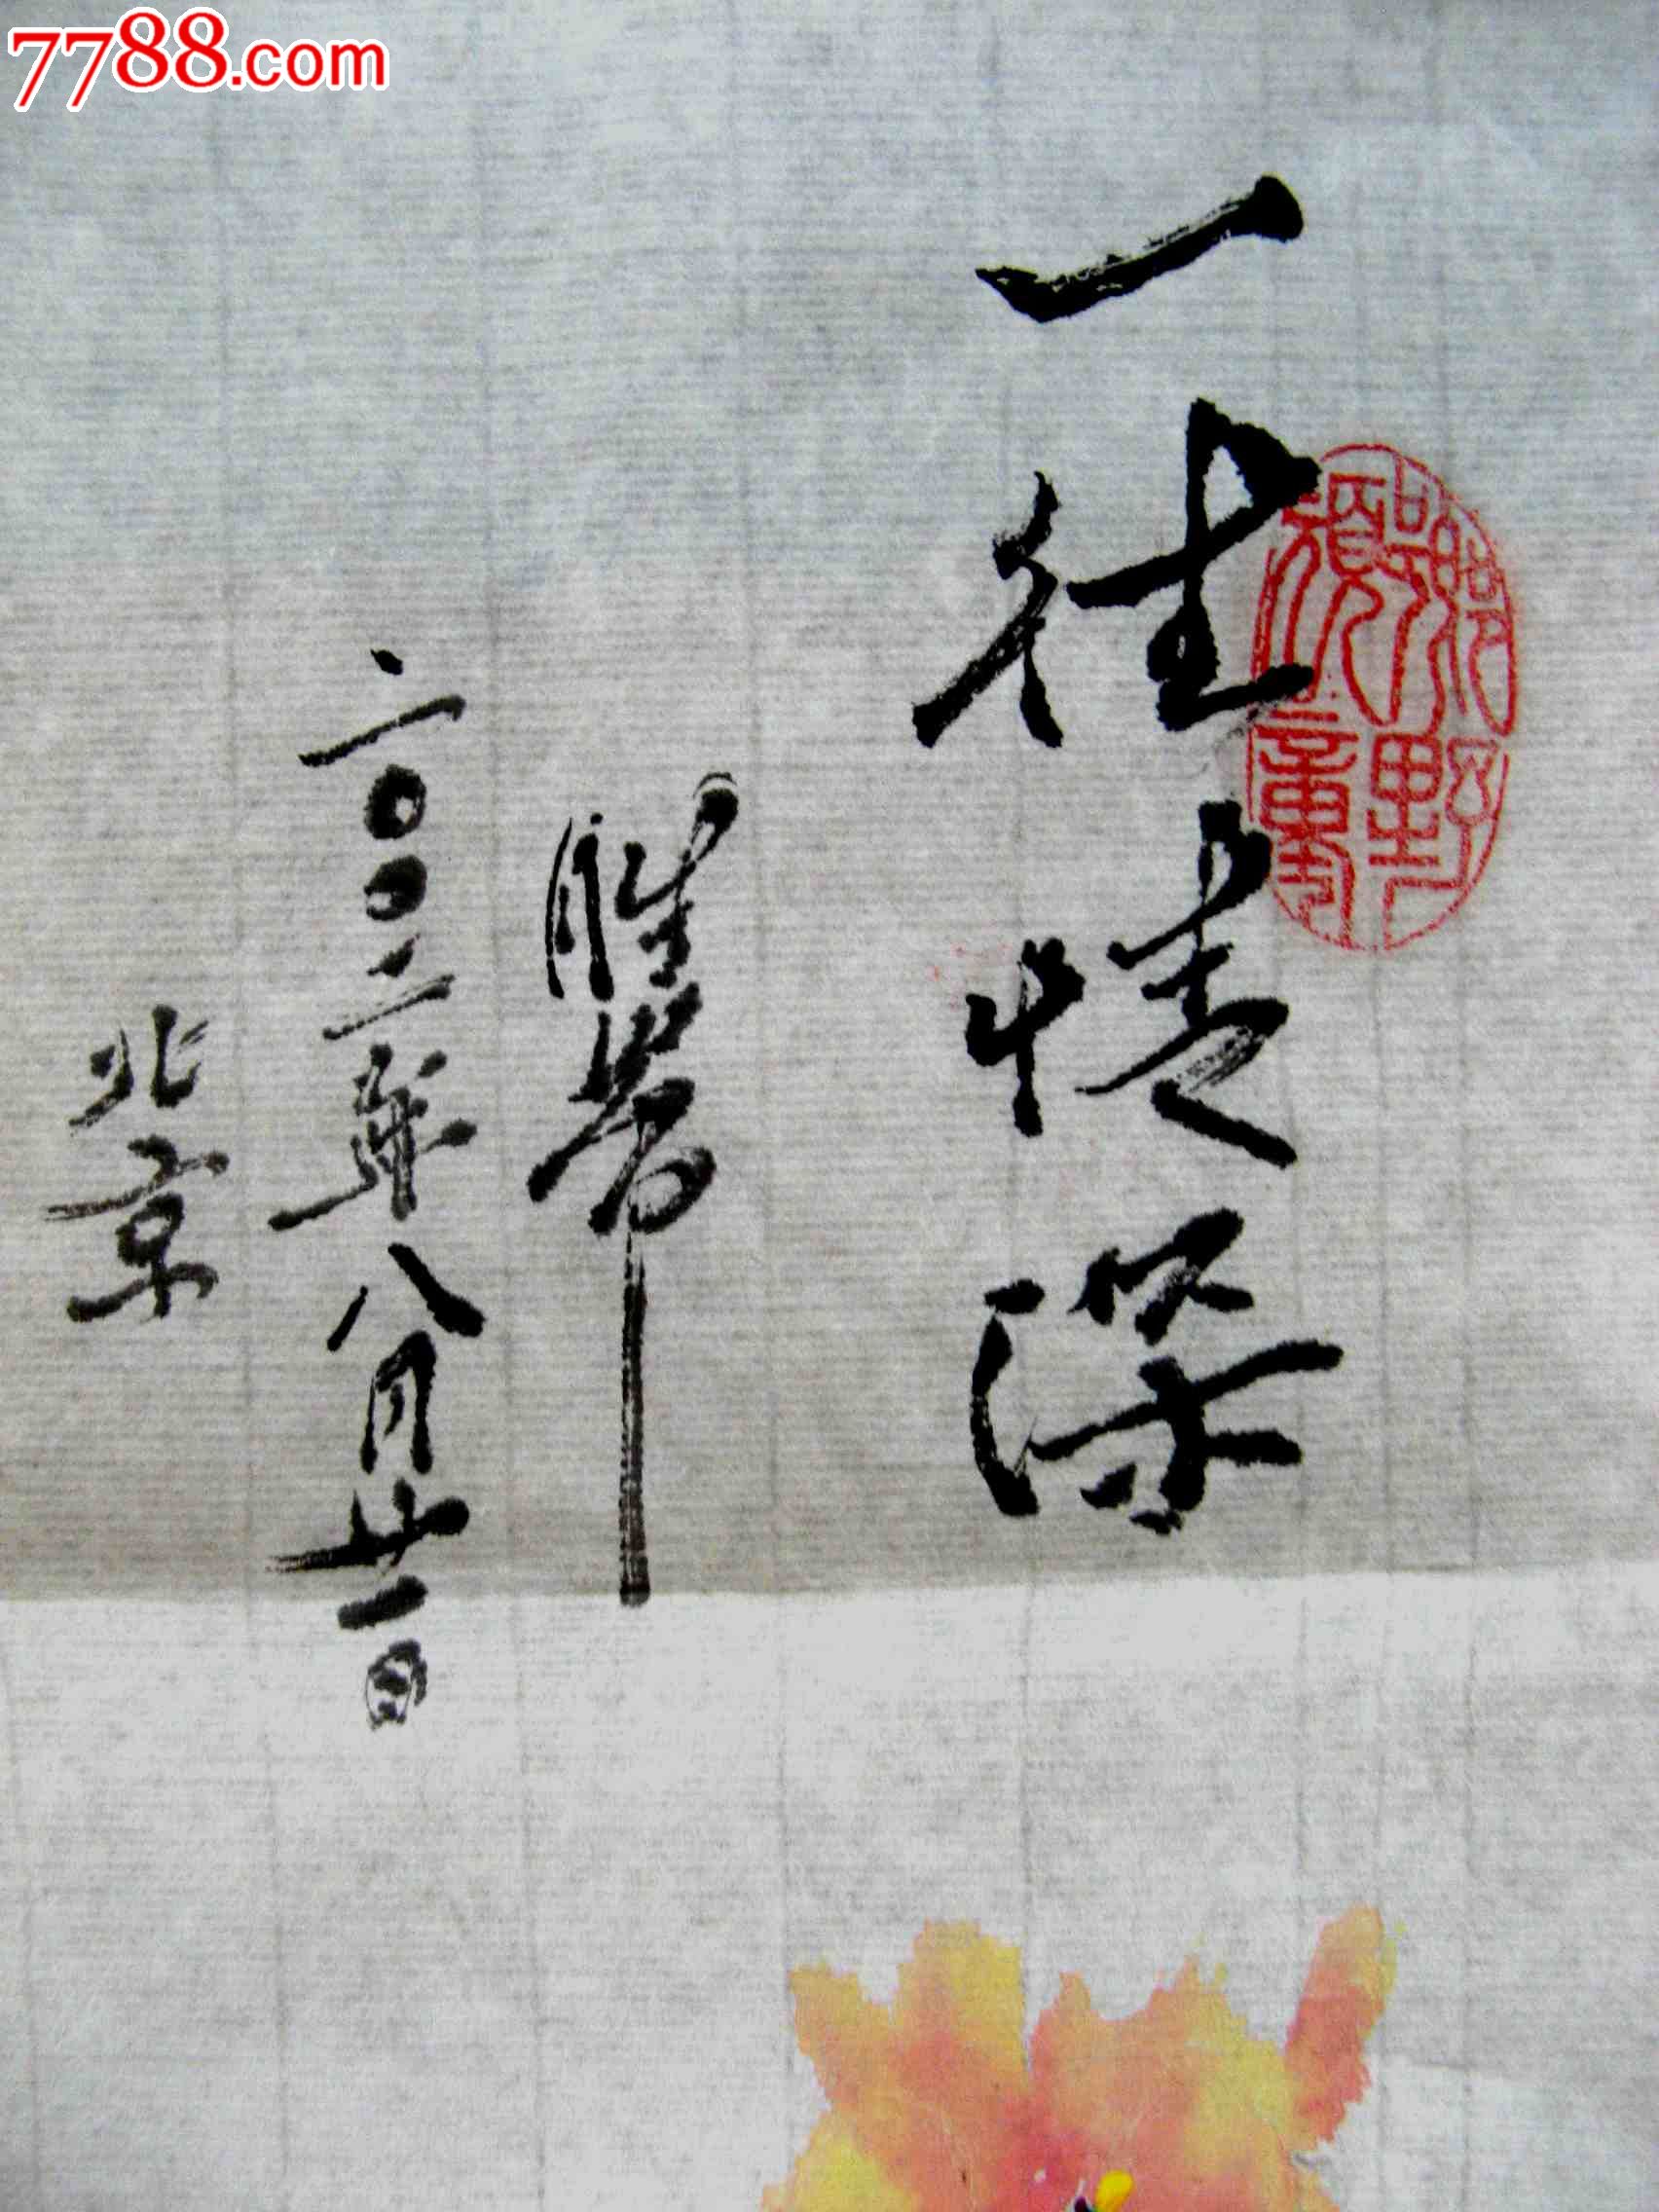 7788.com
一往情深
二〇〇二年八月廿一日
北京